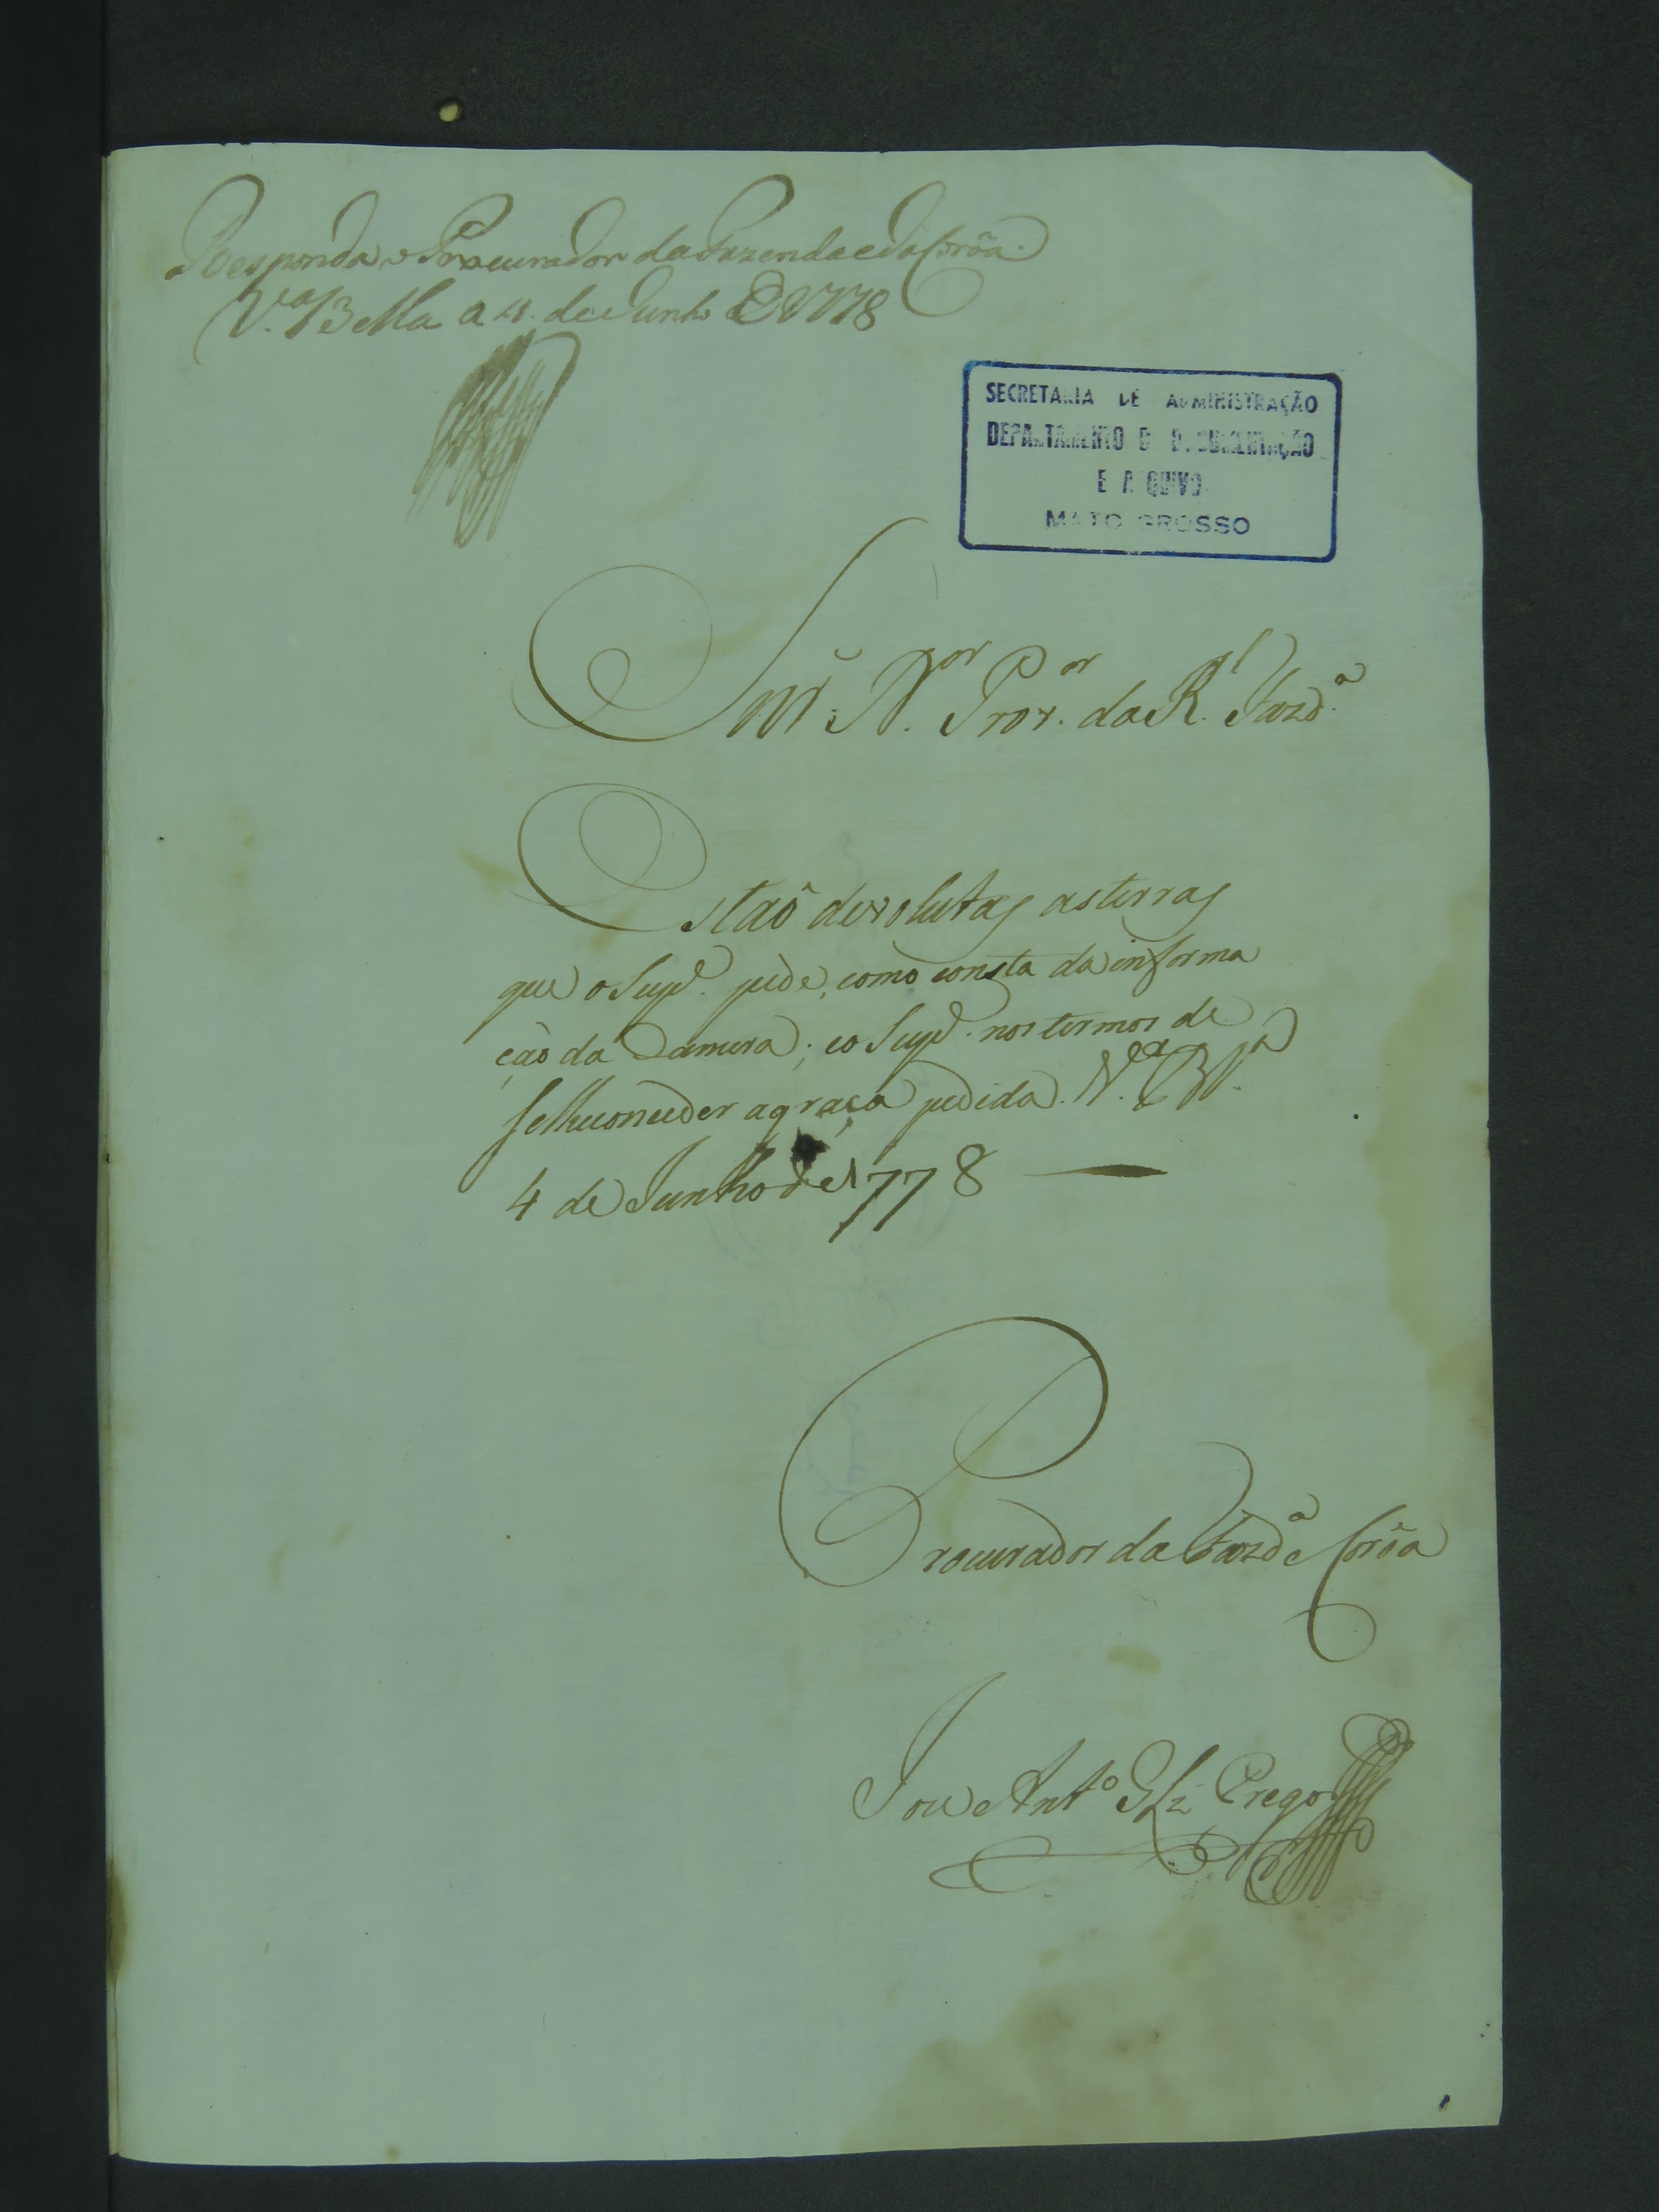 Responda o Procurador da Fazenda e da Corôa.
V.ª Bella a 4. de Junho de 1778
SECRETARIA DE ADMINISTRAÇÃO
DEPARTAMENTO D DOCUMENTAÇÃO
E ARQUIVO
MATO GROSSO
Snr. Prov.or da R.l Fazd.ª
Estaõ devolutas as terras
que o Supe. pede, como consta da informa
ção da Camera; e o Supe. nos termos de
se lhe conceder a graça pedida. V.ª B.ª
4 de Junho de 1778
Procurador da Fazdª e Corôa
Joze Antº Glz Prego